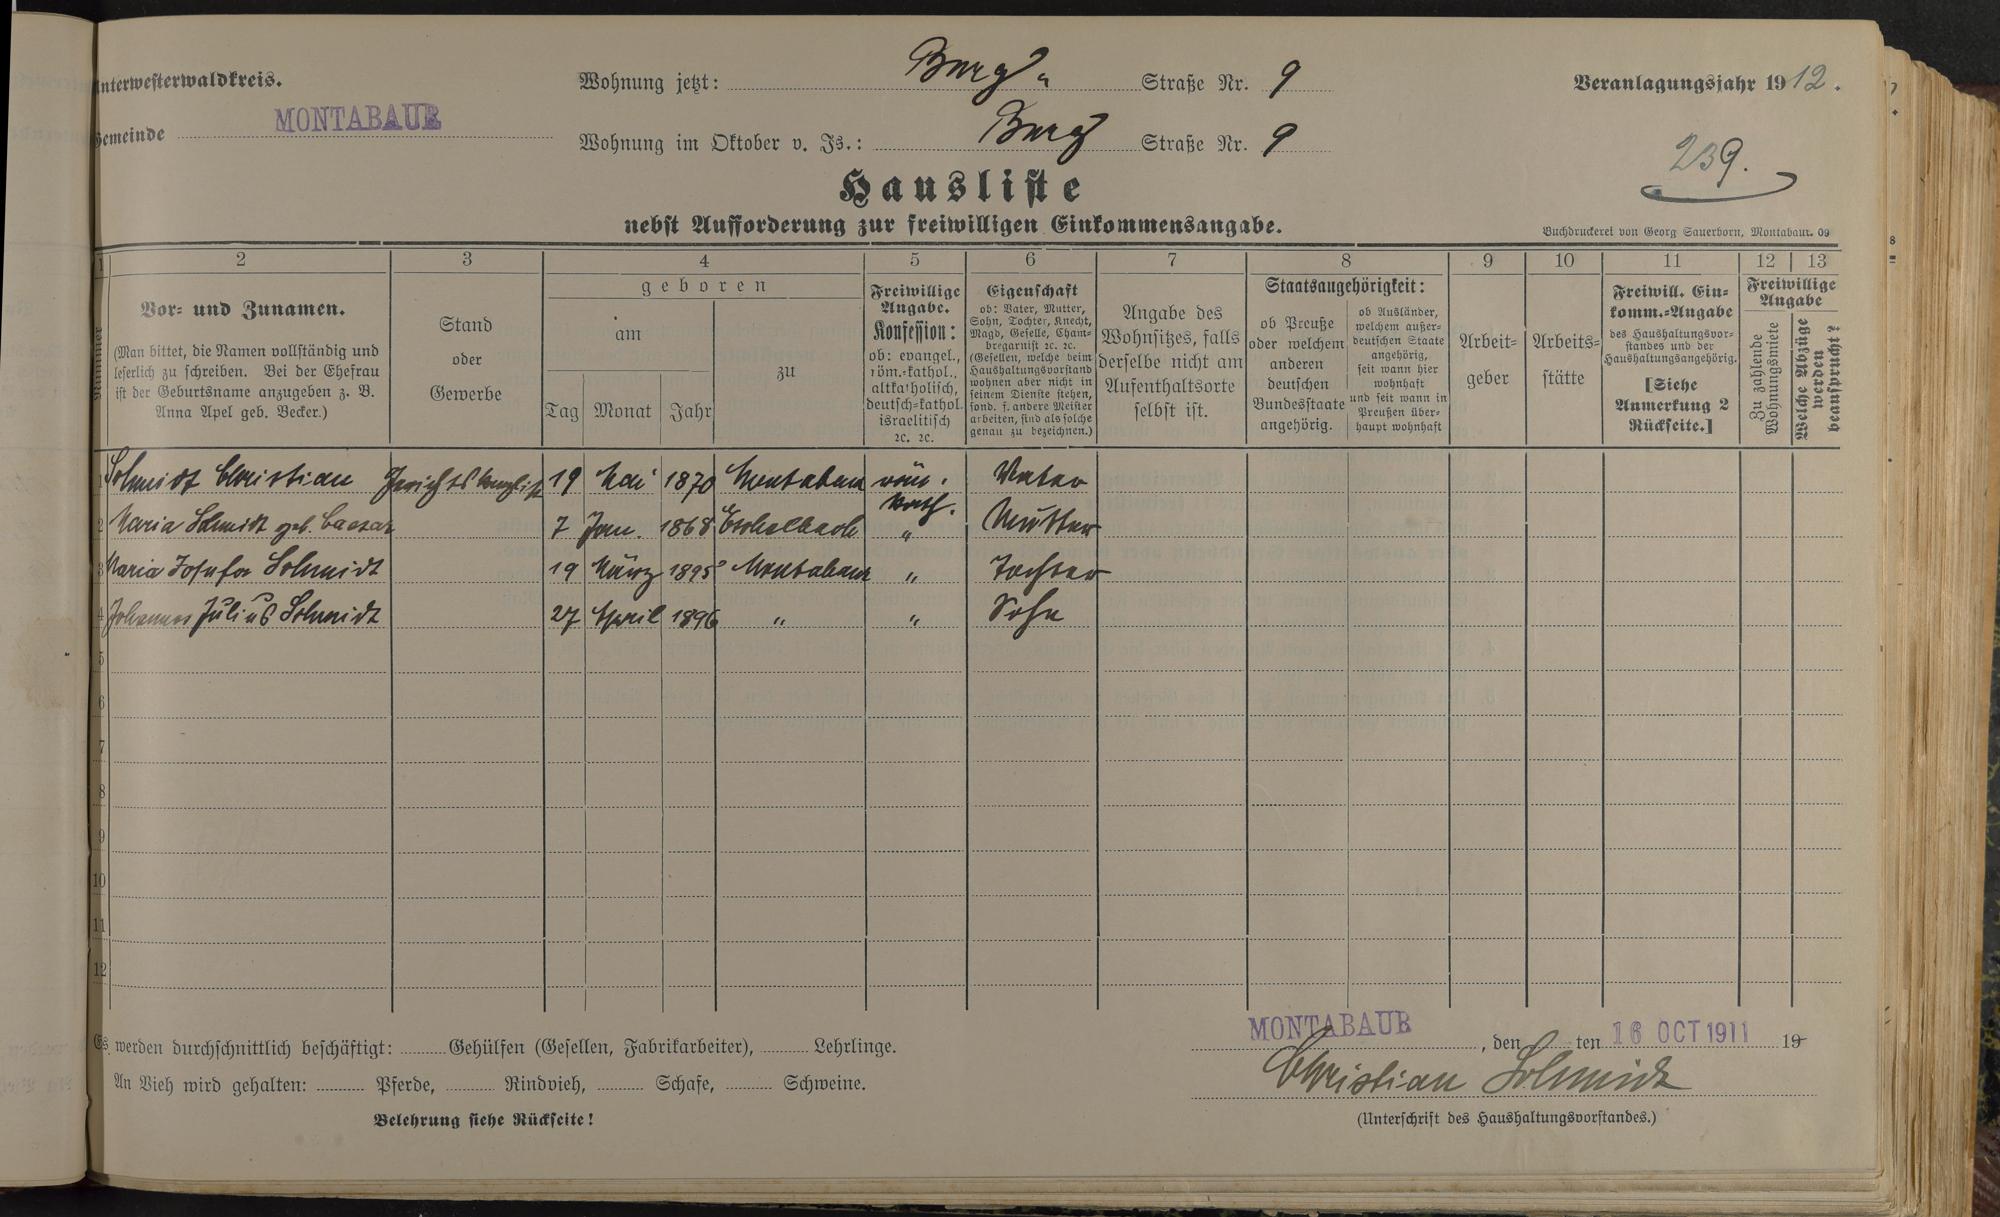 Unterwesterwaldkreis.
Gemeinde MONTABAUR
Wohnung jetzt: Burg- Straße Nr. 9
Wohnung im Oktober v. Js.: Burg Straße Nr. 9
Veranlagungsjahr 1912.
239.
Hausliste
nebst Aufforderung zur freiwilligen Einkommensangabe.
Buchdruckerei von Georg Sauerborn, Montabaur. 09
1 2 3 4 5 6 7 8 9 10 11 12 13
Nummer
Vor- und Zunamen.
(Man bittet, die Namen vollständig und
leserlich zu schreiben. Bei der Ehefrau
ist der Geburtsname anzugeben z. B.
Anna Apel geb. Becker.)
Stand
oder
Gewerbe
geboren
am
Tag Monat Jahr
zu
Freiwillige
Angabe.
Konfession:
ob: evangel.,
röm.-kathol.,
altkatholisch,
deutsch-kathol.
israelitisch
ꝛc. ꝛc.
Eigenschaft
ob: Vater, Mutter,
Sohn, Tochter, Knecht,
Magd, Geselle, Cham-
bregarnist ꝛc. ꝛc.
(Gesellen, welche beim
Haushaltungsvorstand
wohnen aber nicht in
seinem Dienste stehen,
sond. f. andere Meister
arbeiten, sind als solche
genau zu bezeichnen.)
Angabe des
Wohnsitzes, falls
derselbe nicht am
Aufenthaltsorte
selbst ist.
Staatsangehörigkeit:
ob Preuße
oder welchem
anderen
deutschen
Bundesstaate
angehörig.
ob Ausländer,
welchem außer-
deutschen Staate
angehörig,
seit wann hier
wohnhaft
und seit wann in
Preußen über-
haupt wohnhaft
Arbeit-
geber
Arbeits-
stätte
Freiwill. Ein-
komm.-Angabe
des Haushaltungsvor-
standes und der
Haushaltungsangehörig.
[Siehe
Anmerkung 2
Rückseite.]
Freiwillige
Angabe
Zu zahlende
Wohnungsmiete
Welche Abzüge
werden
beansprucht?
1 Schmidt Christian Gerichtskanzlist 19 Mai 1870 Montabaur röm. kath. Vater
2 Maria Schmidt geb. Caesar 7 Jan. 1868 Eschelbach " Mutter
3 Maria Josefa Schmidt 19 März 1895 Montabaur " Tochter
4 Johannes Julius Schmidt 27 April 1896 " " Sohn
5
6
7
8
9
10
11
12
Es werden durchschnittlich beschäftigt: Gehülfen (Gesellen, Fabrikarbeiter), Lehrlinge.
An Vieh wird gehalten: Pferde, Rindvieh, Schafe, Schweine.
Belehrung siehe Rückseite!
MONTABAUR, den ten 16 OCT 1911 19
Christian Schmidt
(Unterschrift des Haushaltungsvorstandes.)